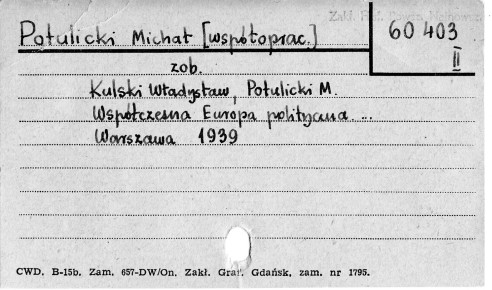 Potulicki Michał [współoprac.]
60 403
II
zob.
Kulski Władysław, Potulicki M.
Współczesna Europa polityczna ...
Warszawa 1939
CWD. B-15b. Zam. 657-DW/On. Zakł. Graf. Gdańsk, zam. nr 1795.